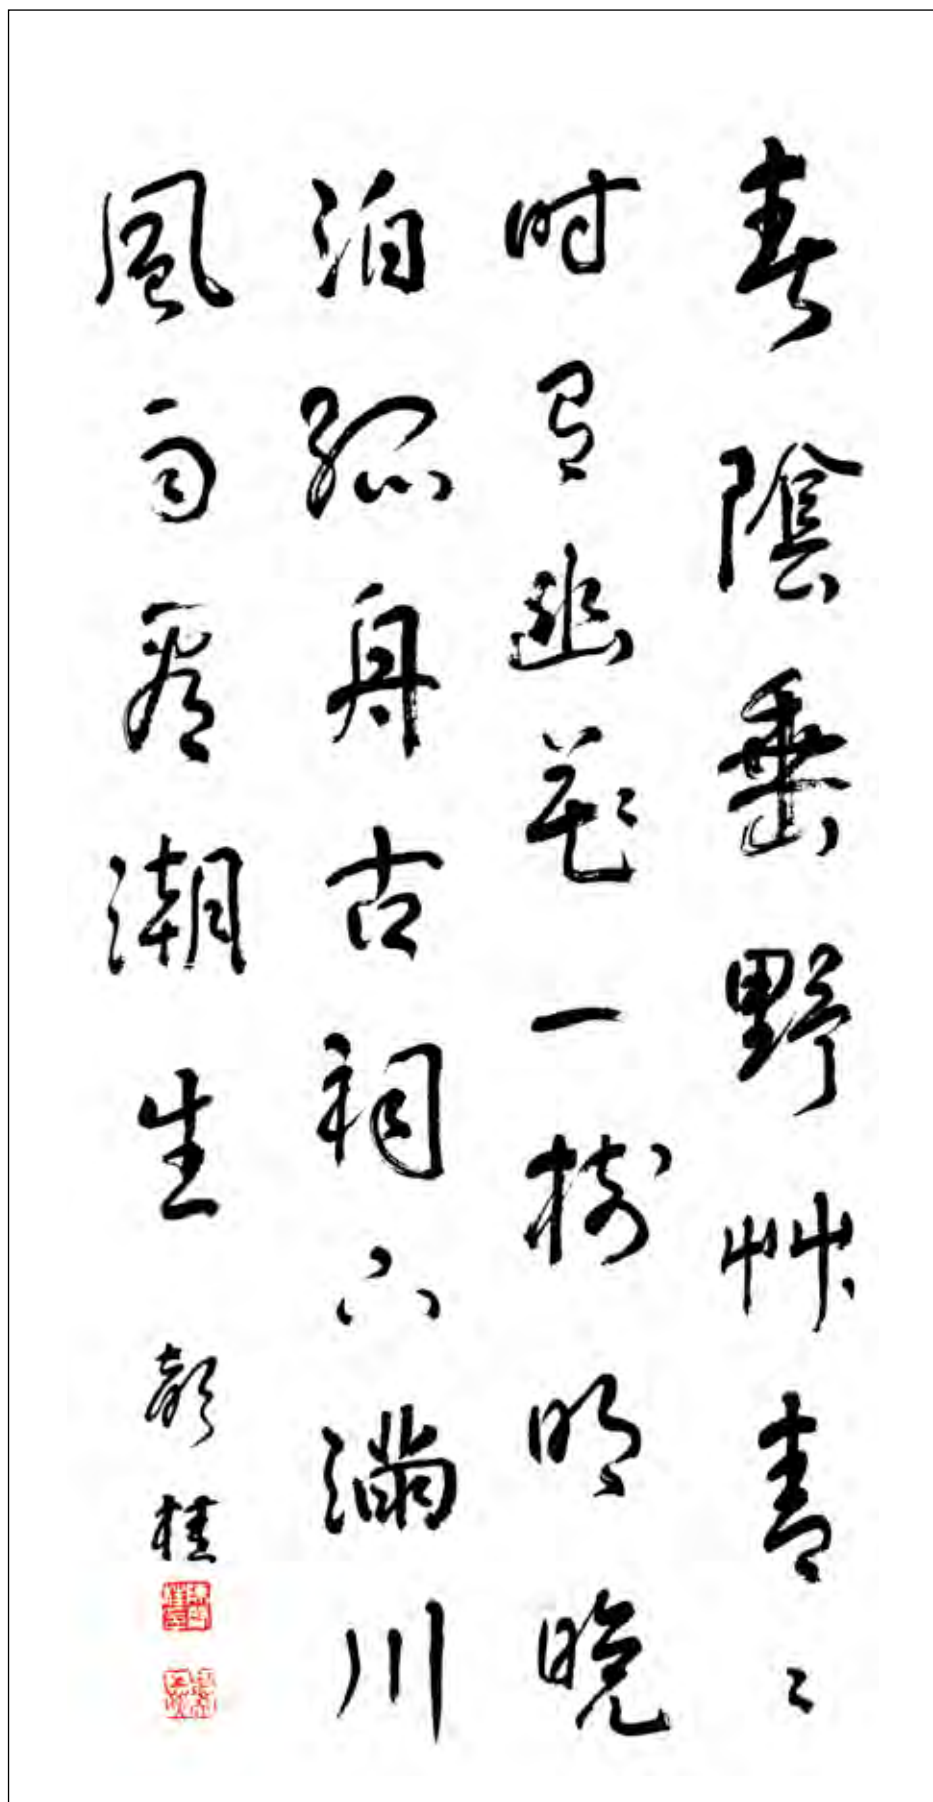 春陰垂野艸青々
时有幽花一樹明晚
泊孤舟古祠下滿川
風雨看潮生
桂